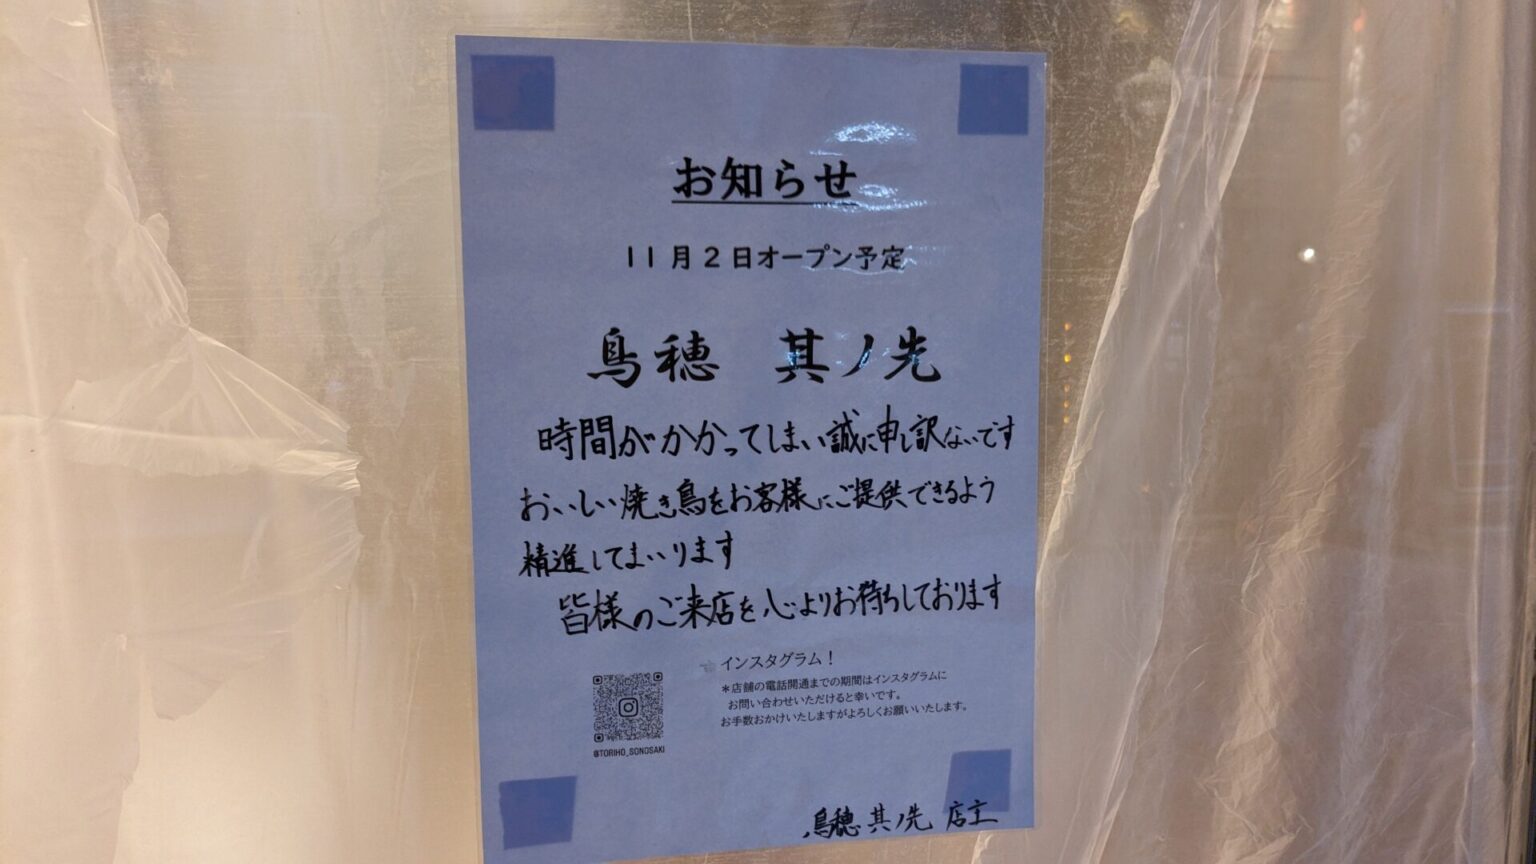 お知らせ
11月2日オープン予定
鳥穂 其ノ先
時間がかかってしまい誠に申し訳ないです
おいしい焼き鳥をお客様にご提供できるよう
精進してまいります
皆様のご来店を心よりお待ちしております
☜ インスタグラム！
＊店舗の電話開通までの期間はインスタグラムに
お問い合わせいただけると幸いです。
お手数おかけいたしますがよろしくお願いいたします。
@TORIHO_SONOSAKI
鳥穂 其ノ先 店主